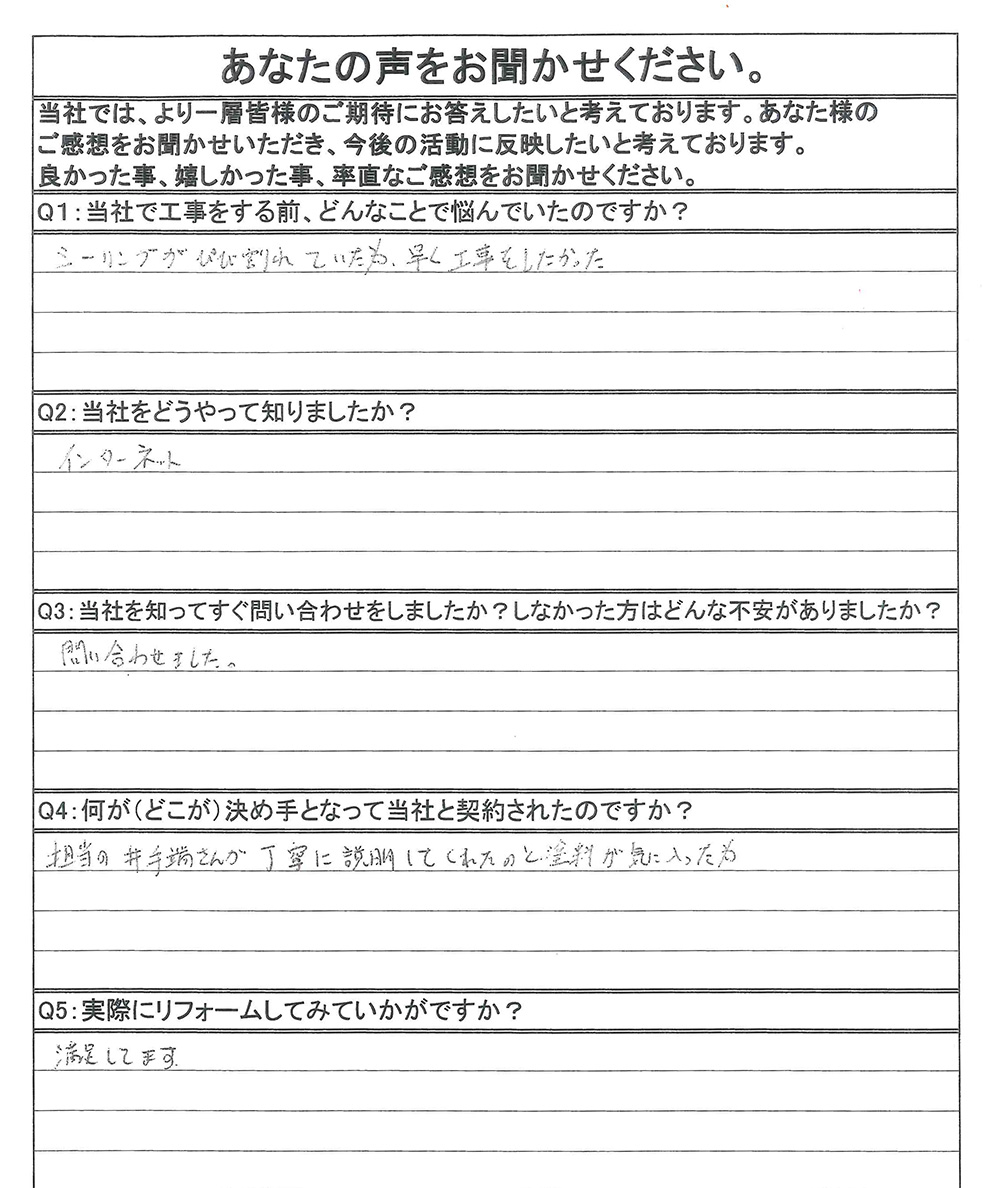 あなたの声をお聞かせください。
当社では、より一層皆様のご期待にお答えしたいと考えております。あなた様の
ご感想をお聞かせいただき、今後の活動に反映したいと考えております。
良かった事、嬉しかった事、率直なご感想をお聞かせください。
Q1：当社で工事をする前、どんなことで悩んでいたのですか？
シーリングがひび割れていた為、早く工事をしたかった
Q2：当社をどうやって知りましたか？
インターネット
Q3：当社を知ってすぐ問い合わせをしましたか？しなかった方はどんな不安がありましたか？
問い合わせました。
Q4：何が（どこが）決め手となって当社と契約されたのですか？
担当の井手端さんが丁寧に説明してくれたのと塗料が気に入った為
Q5：実際にリフォームしてみていかがですか？
満足してます